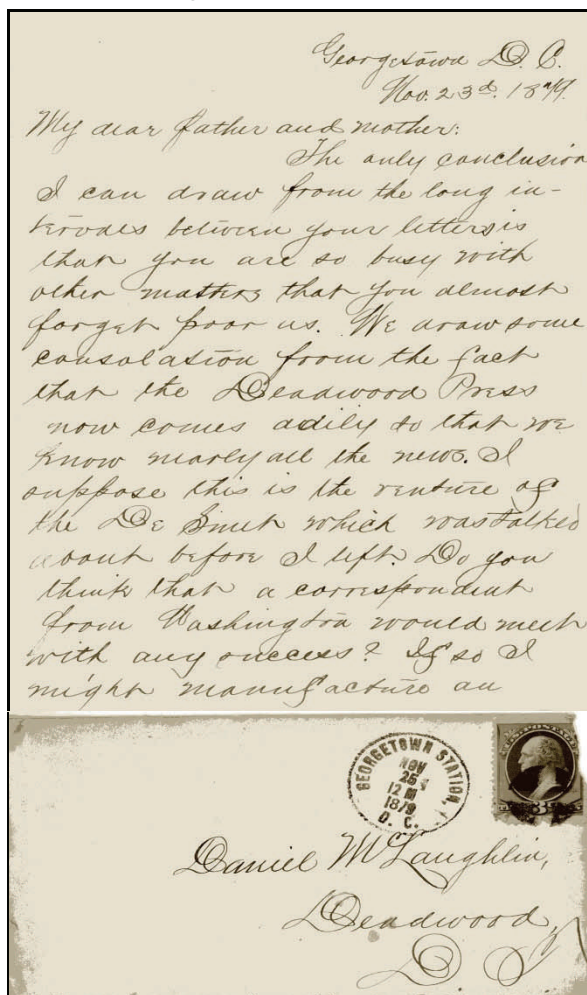 Georgetown D. C.
Nov. 23d. 1879.
My dear father and mother:
The only conclusion
I can draw from the long in-
tervales between your letters is
that you are so busy with
other matters that you almost
forget poor us. We draw some
consolation from the fact
that the Deadwood Press
now comes adily so that we
know nearly all the news. I
suppose this is the venture of
the De Smet which was talked
about before I left. Do you
think that a correspondent
from Washington would meet
with any success? If so I
might manufacture an
GEORGETOWN STATION,
NOV
25
12 M
1879
D. C.
Daniel McLaughlin,
Deadwood,
D.